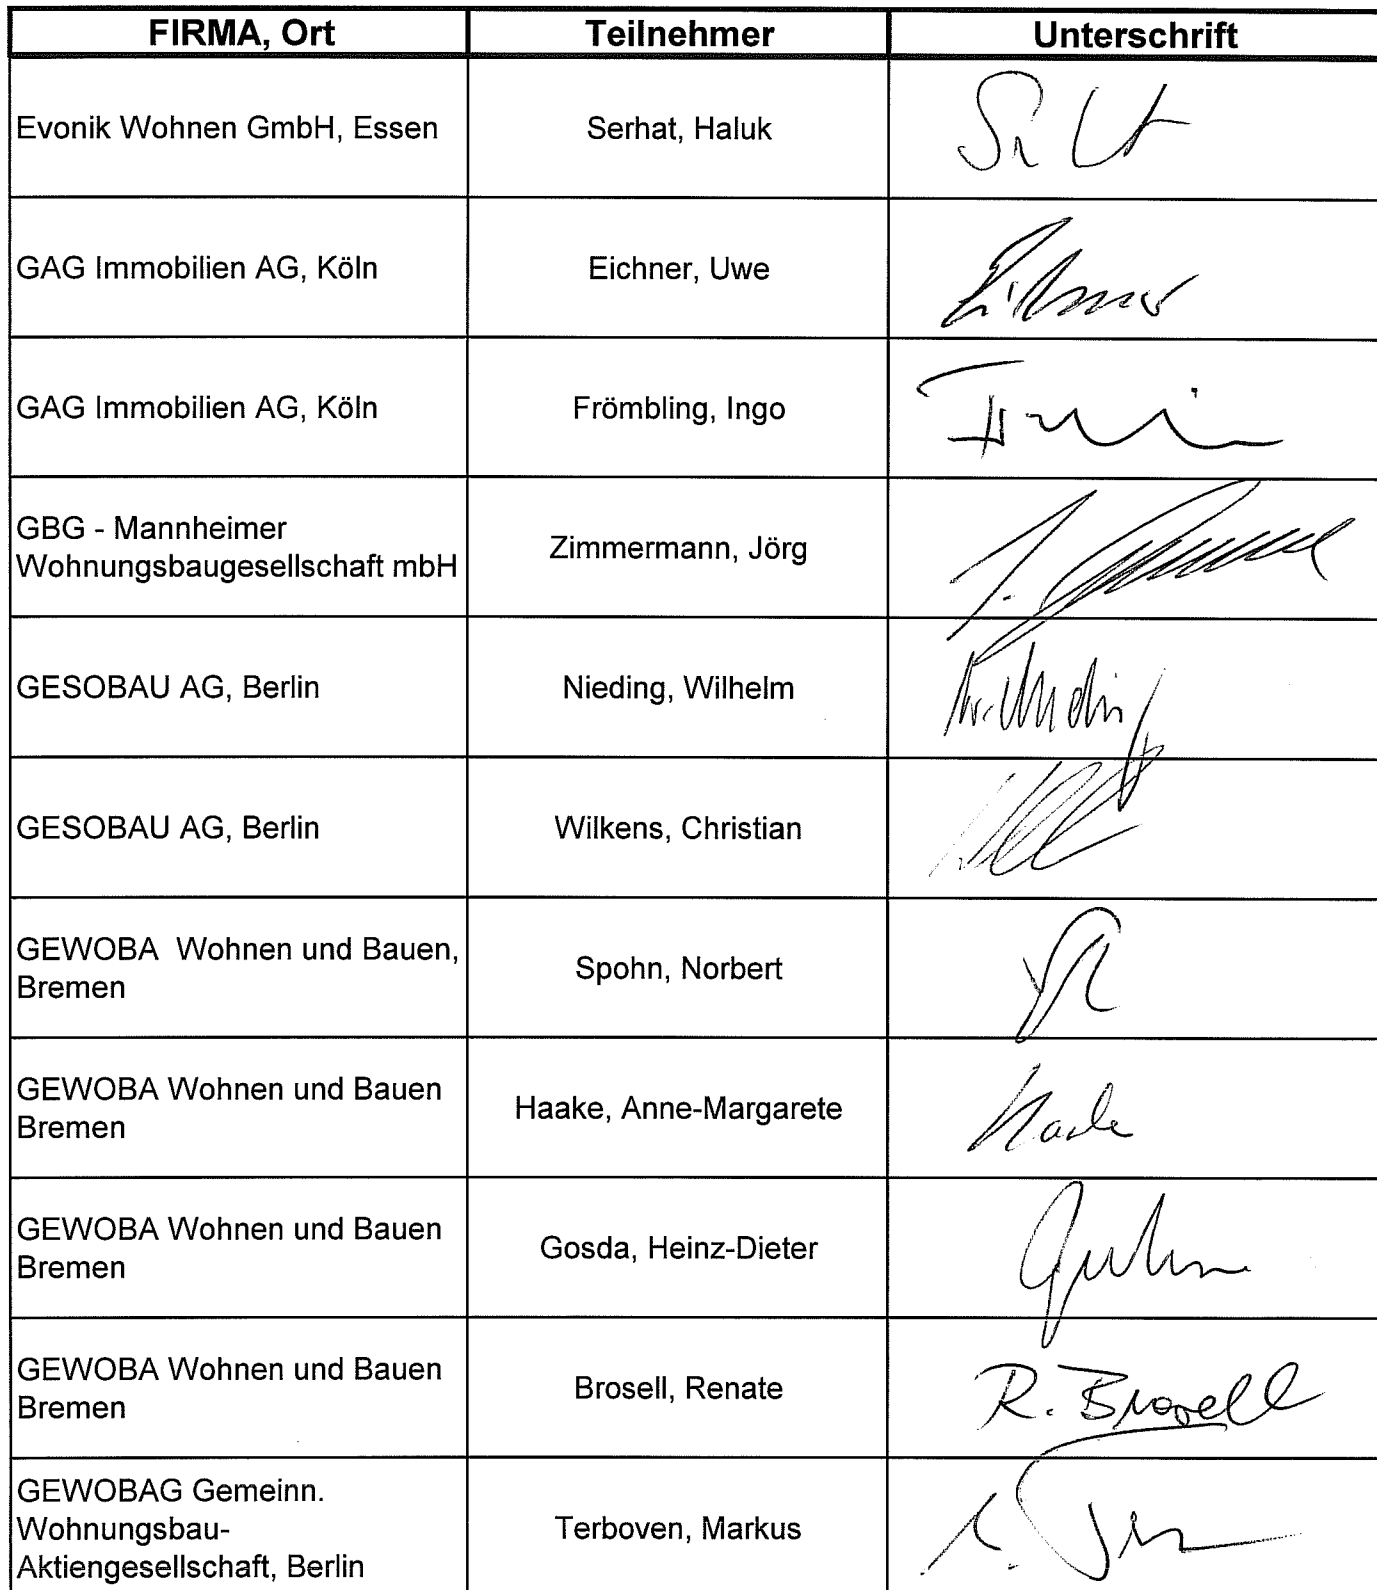 FIRMA, Ort Teilnehmer Unterschrift
Evonik Wohnen GmbH, Essen Serhat, Haluk
GAG Immobilien AG, Köln Eichner, Uwe
GAG Immobilien AG, Köln Frömbling, Ingo
GBG - Mannheimer
Wohnungsbaugesellschaft mbH Zimmermann, Jörg
GESOBAU AG, Berlin Nieding, Wilhelm
GESOBAU AG, Berlin Wilkens, Christian
GEWOBA Wohnen und Bauen,
Bremen Spohn, Norbert
GEWOBA Wohnen und Bauen
Bremen Haake, Anne-Margarete
GEWOBA Wohnen und Bauen
Bremen Gosda, Heinz-Dieter
GEWOBA Wohnen und Bauen
Bremen Brosell, Renate R. Brosell
GEWOBAG Gemeinn.
Wohnungsbau-
Aktiengesellschaft, Berlin Terboven, Markus